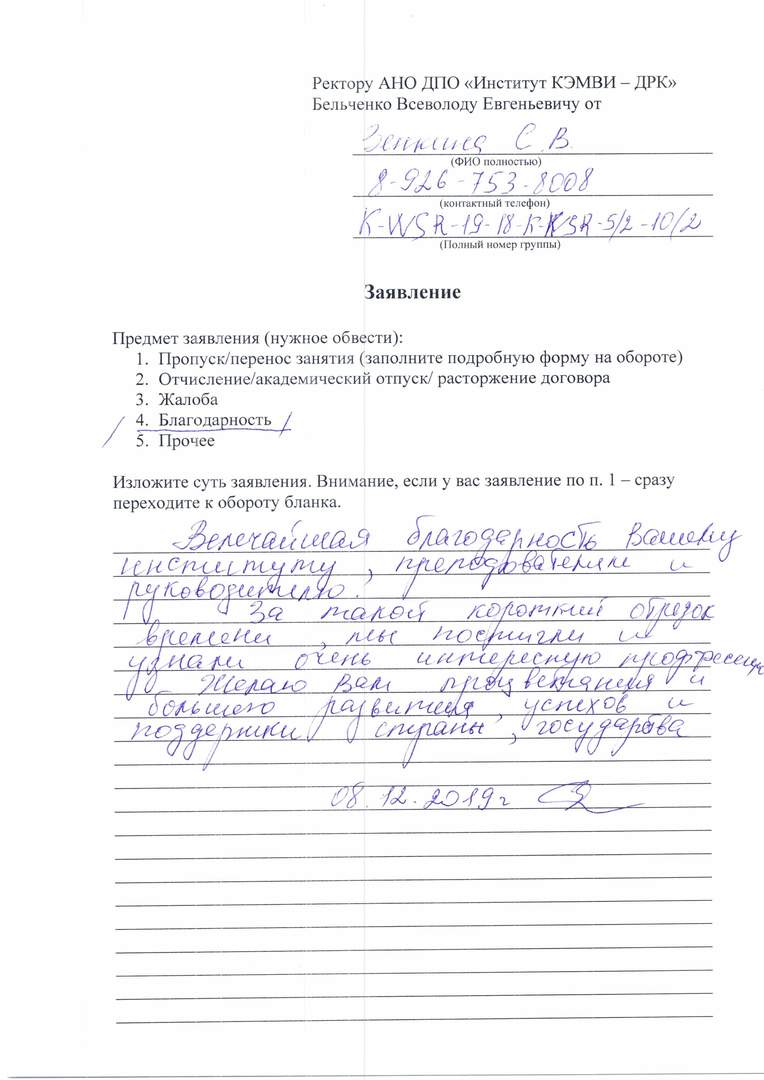 Ректору АНО ДПО «Институт КЭМВИ – ДРК»
Бельченко Всеволоду Евгеньевичу от
Зенкина С.В.
(ФИО полностью)
8-926-753-8008
(контактный телефон)
K-WSR-19-18-K-KSR-5/2-10/2
(Полный номер группы)
Заявление
Предмет заявления (нужное обвести):
1. Пропуск/перенос занятия (заполните подробную форму на обороте)
2. Отчисление/академический отпуск/ расторжение договора
3. Жалоба
4. Благодарность
5. Прочее
Изложите суть заявления. Внимание, если у вас заявление по п. 1 – сразу
переходите к обороту бланка.
Величайшая благодарность Вашему
институту, преподователям и
руководителю.
За такой короткий отрезок
времени, мы постигли и
узнали очень интересную профессию
Желаю Вам процветания и
большего развития, успехов и
поддержки страны, государства
08.12.2019г